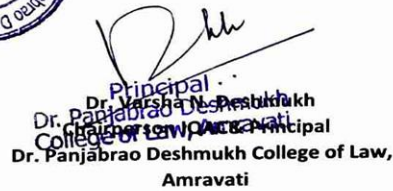 Principal
Dr. Panjabrao Deshmukh
College of Law, Amravati
Dr. Varsha N. Deshmukh
Chairperson IQAC & Principal
Dr. Panjabrao Deshmukh College of Law,
Amravati